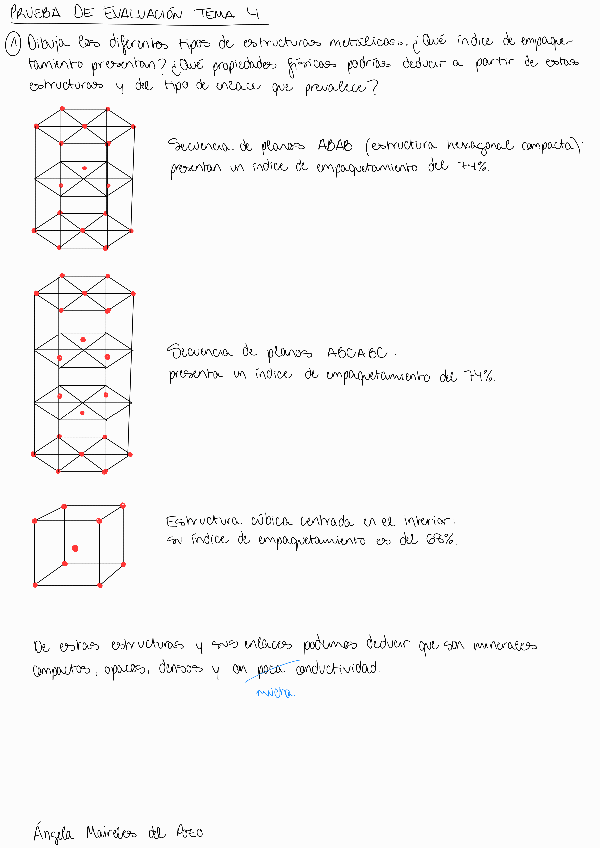 PRUEBA DE EVALUACIÓN TEMA 4
1 Dibuja los diferentes tipos de estructuras metálicas. ¿Qué índice de empaque-
tamiento presentan? ¿Qué propiedades físicas podrías deducir a partir de estas
estructuras y del tipo de enlace que prevalece?
Secuencia de planos ABAB (estructura hexagonal compacta).
presentan un índice de empaquetamiento del 74%.
Secuencia de planos ABCABC.
presenta un índice de empaquetamiento del 74%.
Estructura cúbica centrada en el interior.
su índice de empaquetamiento es del 68%.
De estas estructuras y sus enlaces podemos deducir que son minerales
compactos, opacos, densos y con poca conductividad.
mucha.
Ángela del